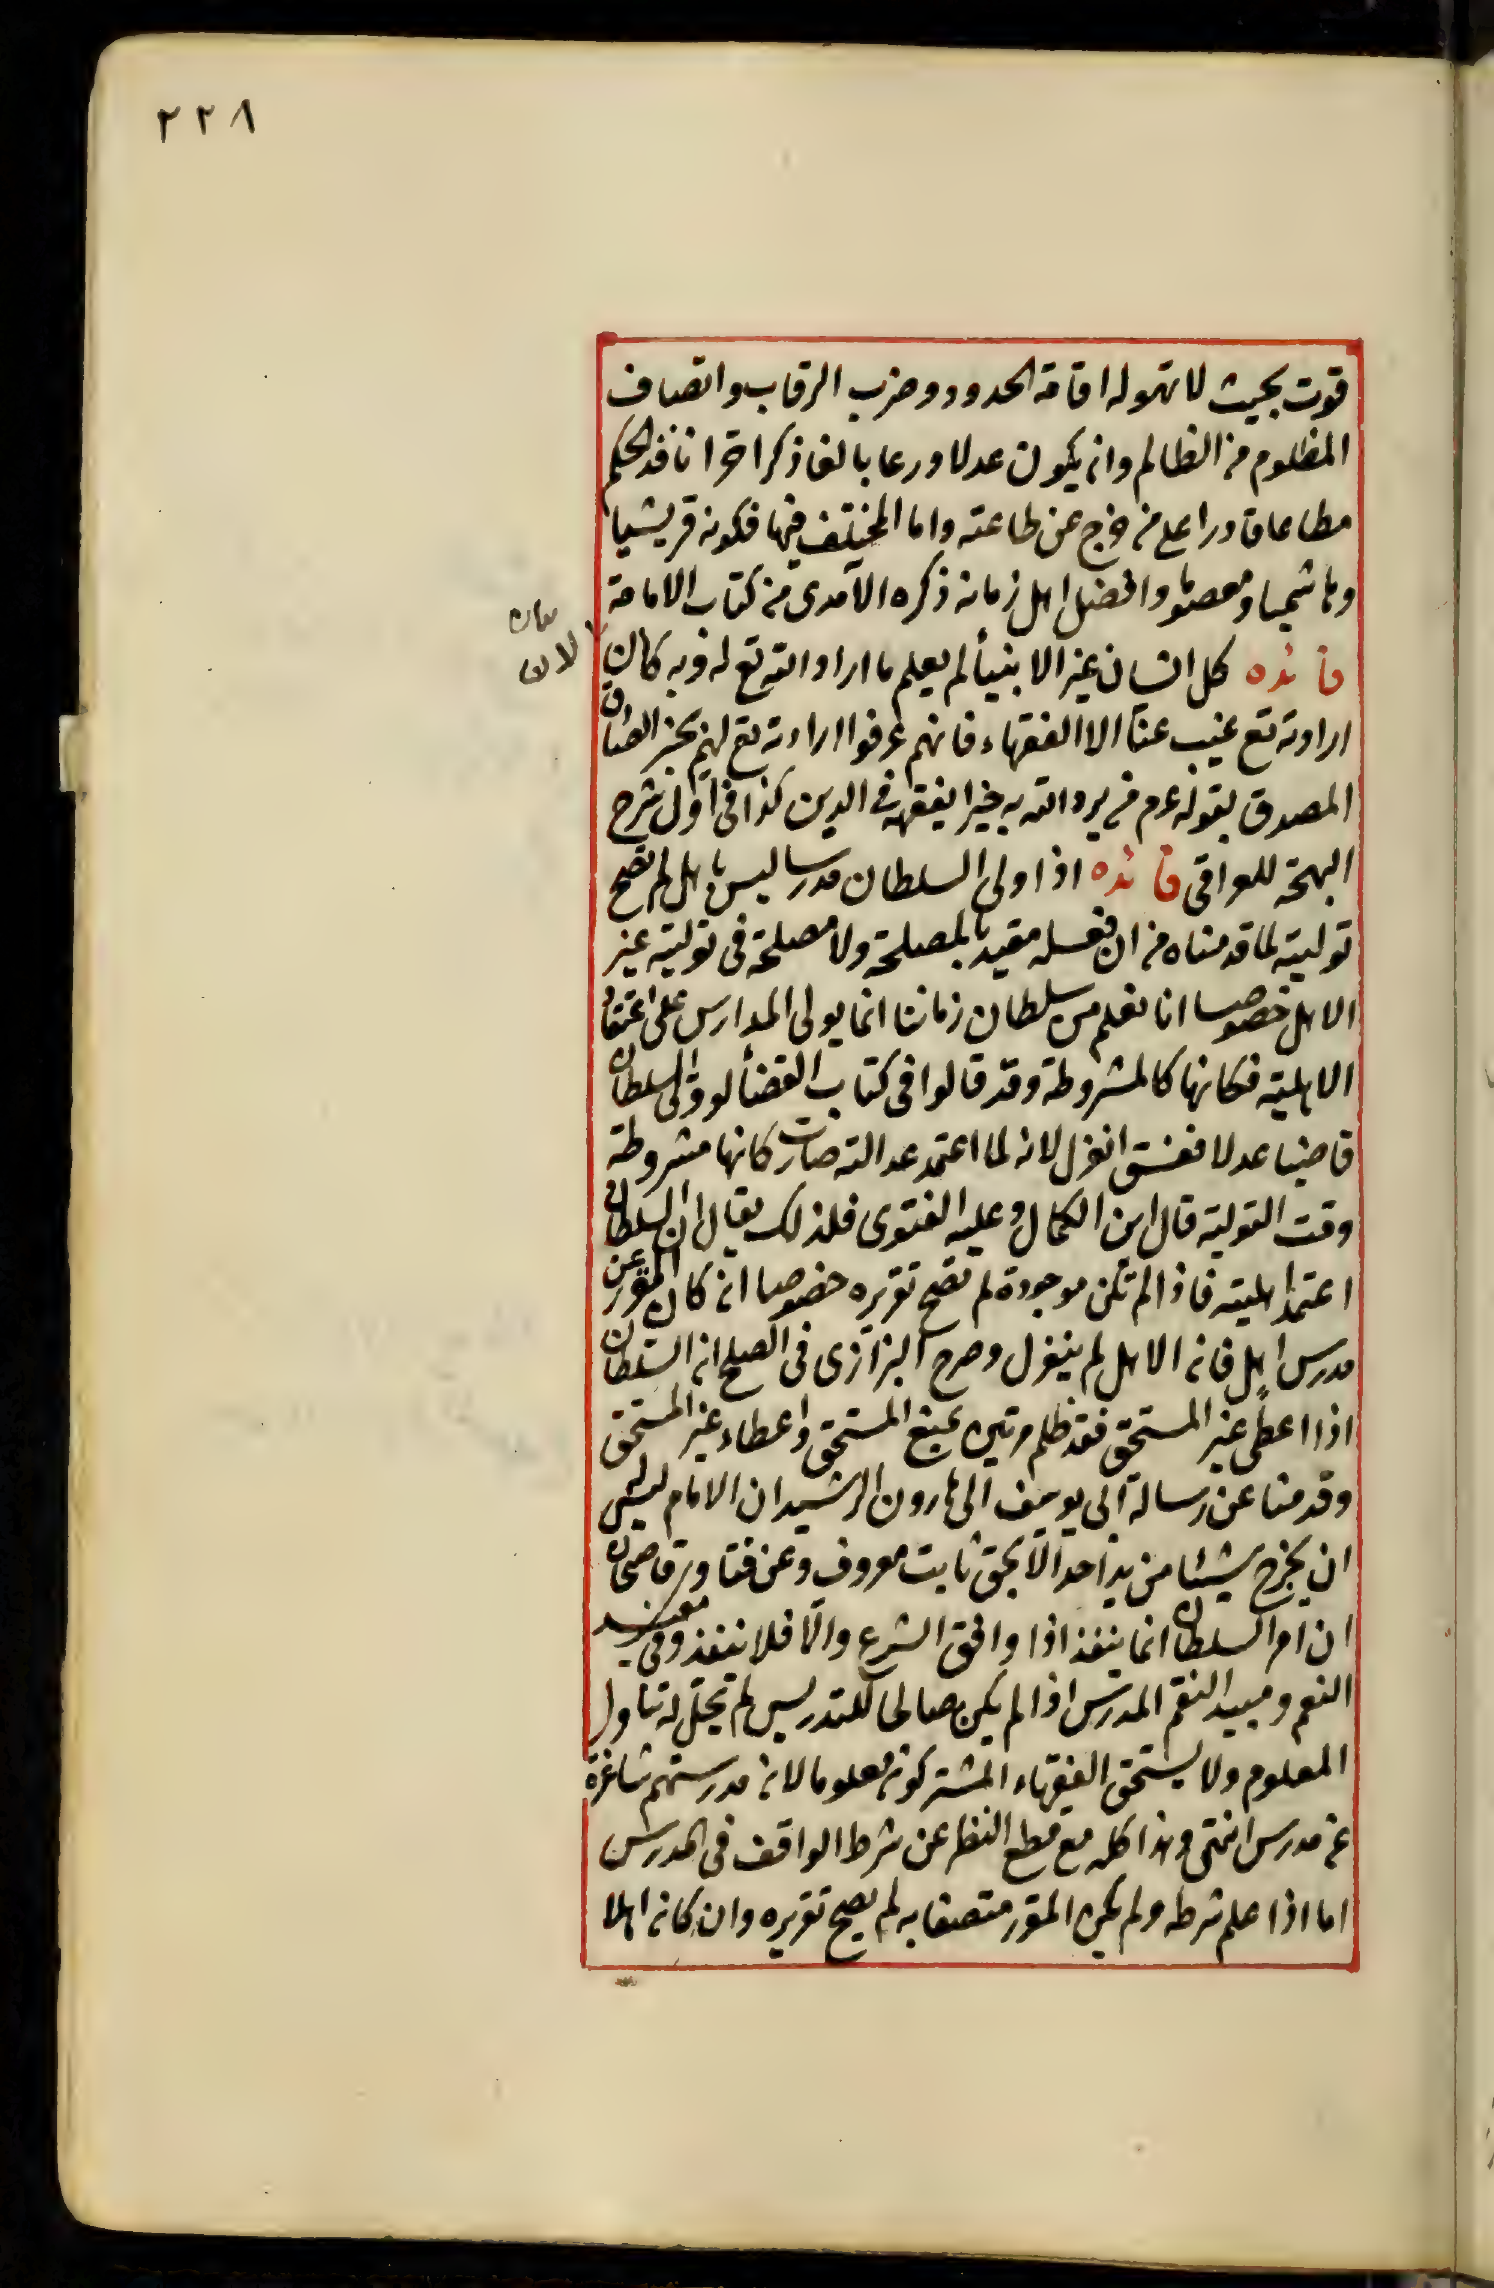 ٢٢٨
قوت بحيث لا تهوله اقامة الحدود وضرب الرقاب وانصاف
المظلوم من الظالم وان يكون عدلا ورعا بالغا ذكرا حرا نافذ الحكم
مطاعا قادرا على من خرج عن طاعته واما المختلف فيها فكونه قريشيا
وهاشميا ومعصوما وافضل اهل زمانه ذكره الآمدى من كتاب الامامة
فائده كل انسان غير الانبيأ لم يعلم ما اراد الله تع له وبه لان
ارادته تع غيب عنا الا الفقهاء فانهم عرفوا ارادته تع لهم بخبر الصادق
المصدق بقوله عم من يرد الله به خيرا يفقهه فى الدين كذا فى اول شرح
البهجة للعراقى فائده اذا ولى السلطان مدرسا ليس باهل لم تصح
توليته لما قدمناه من ان فعله مقيد بالمصلحة ولا مصلحة فى تولية غير
الاهل خصوصا انا نعلم من سلطان زماننا انما يولى المدارس على اعتقاد
الاهلية فكانها كالمشروطة وقد قالوا فى كتاب القضأ لو ولى السلطان
قاضيا عدلا ففسق انعزل لانه لما اعتمد عدالته صارت كانها مشروطة
وقت التولية قال ابن الكمال وعليه الفتوى فلذلك يقال ان السلطان
اعتمد اهليته فاذا لم تكن موجودة لم تصح تقريره خصوصا ان كان المقرر عن
مدرس اهل فان الاهل لم ينعزل وصرح البزازى فى الصلح ان السلطان
اذا اعطى غير المستحق فقد ظلم مرتين بمنع المستحق واعطاء غير المستحق
وقدمنا عن رسالة ابى يوسف الى هارون الرشيد ان الامام ليس له
ان يخرج شيئا من يد احد الا بحق ثابت معروف وعن فتاوى قاضيخان
ان امر السلطان انما ينفذ اذا وافق الشرع والا فلا ينفذ وفى معيد
النعم ومبيد النقم المدرس اذا لم يكن صالحا للتدريس لم تحل له تناول
المعلوم ولا يستحق الفقهاء المشتركون معلوما لان مدرستهم شاغرة
عن مدرس انتهى وهذا كله مع قطع النظر عن شرط الواقف فى المدرس
اما اذا علم شرطه ولم يكن المقرر متصفا به لم يصح تقريره وان كان اهلا